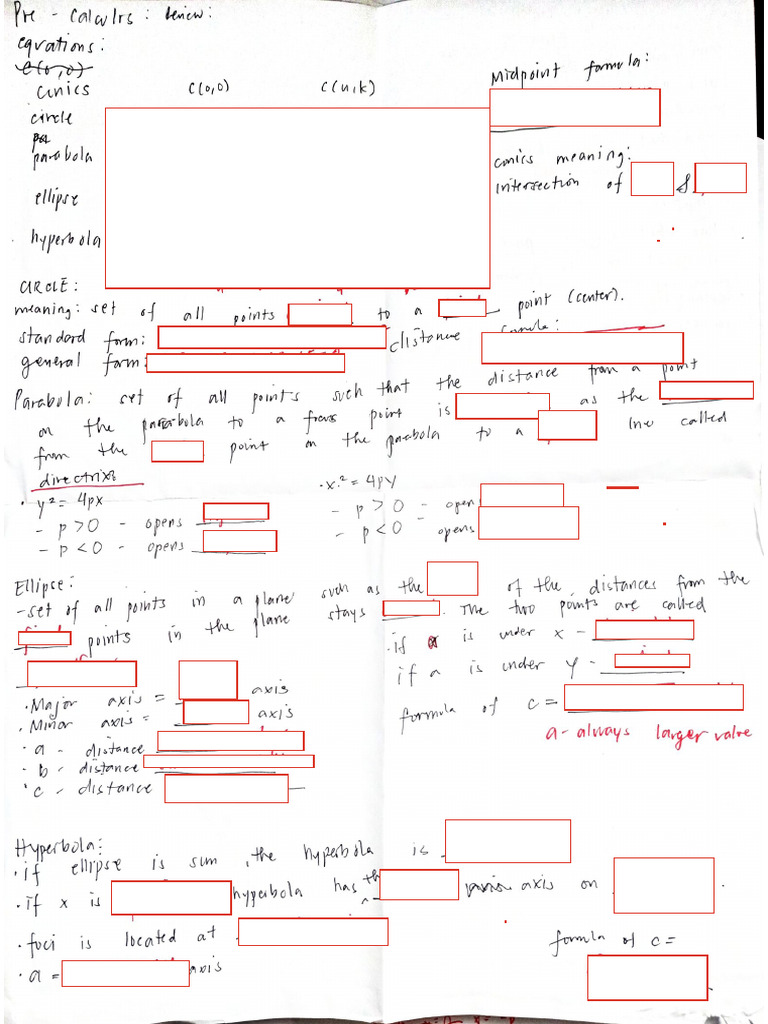 Pre - calculrs : Review:
equations:
C(0,0)
conics C(0,0) C(h,k) Midpoint formula:
circle
pa
parabola conics meaning:
intersection of &
ellipse
hyperbola
CIRCLE:
meaning: set of all points to a point (center).
standard form: distance formula:
general form:
Parabola: set of all points such that the distance from a point
on the parabola to a focus point is as the
from the point on the parabola to a line called
directrix
• y² = 4px • x² = 4py
- p > 0 - opens - p > 0 - opens
- p < 0 - opens - p < 0 - opens
Ellipse:
- set of all points in a plane such as the of the distances from the
points in the plane stays . The two points are called
• if a is under x -
if a is under y -
• Major axis = axis
• Minor axis = axis
formula of c =
a - always larger value
• a - distance
• b - distance
• c - distance
Hyperbola:
• if ellipse is sum, the hyperbola is
• if x is hyperbola has axis on
• foci is located at
formula of c =
• a = axis